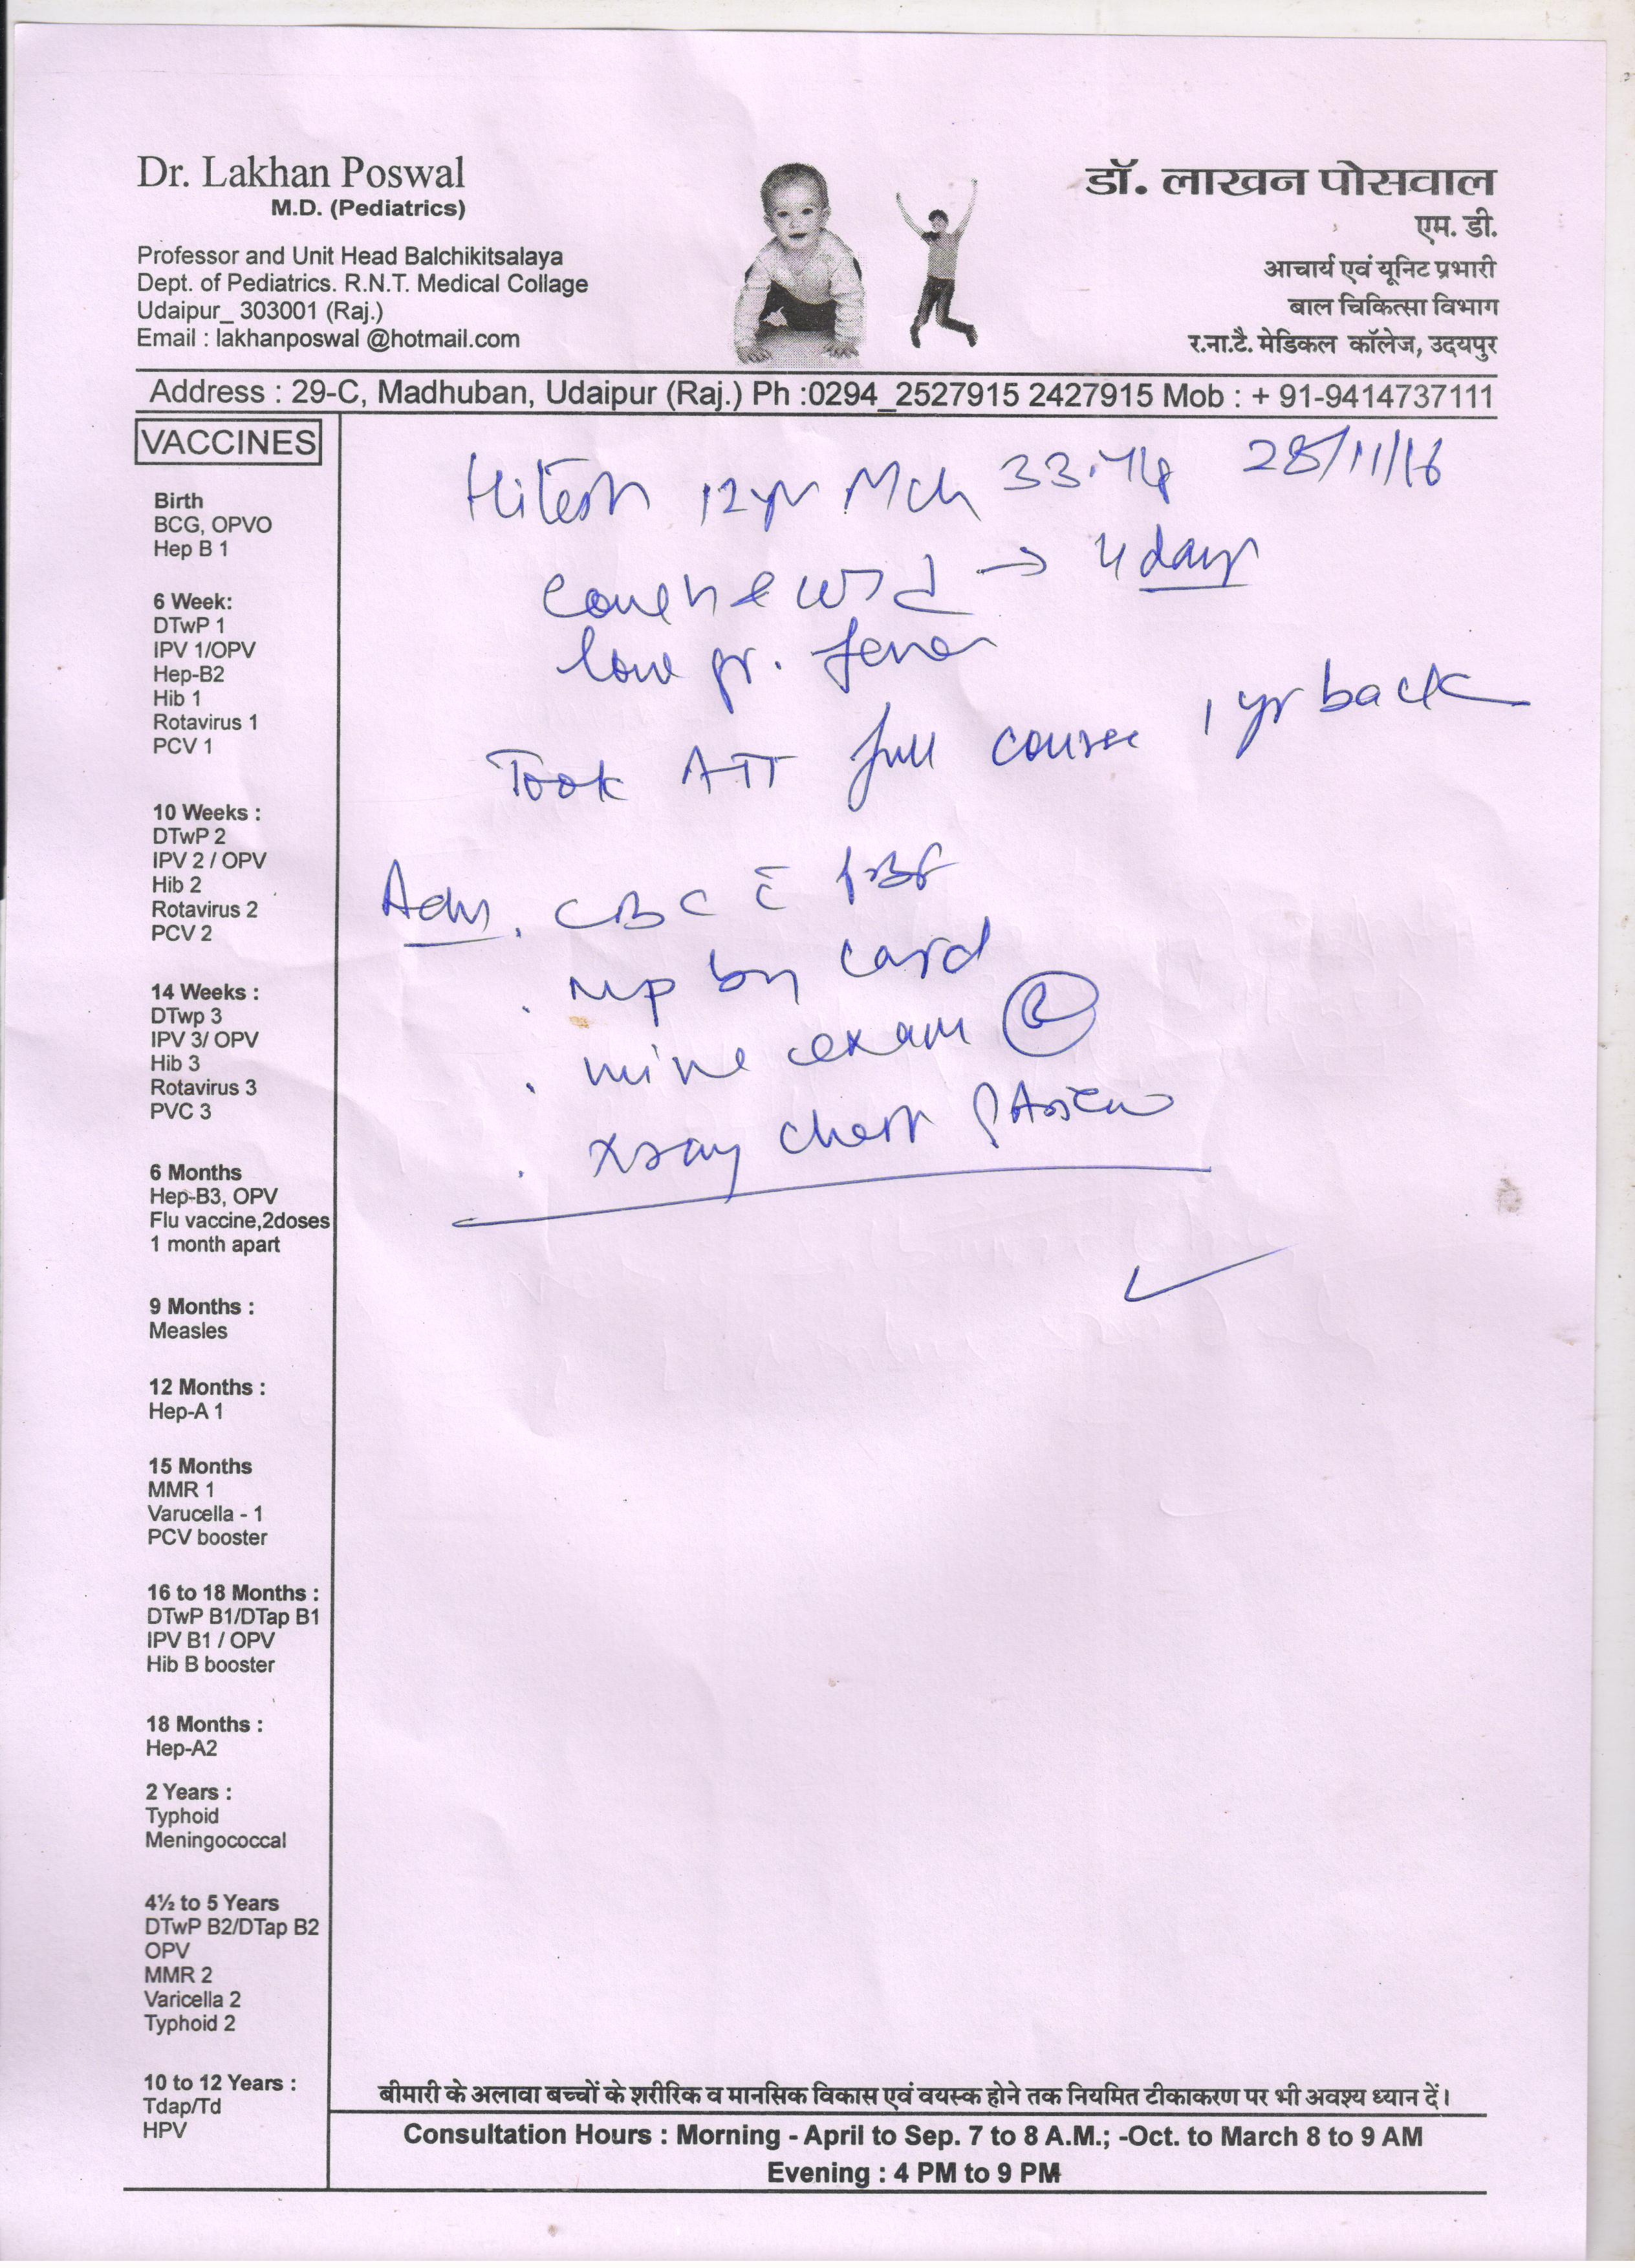 Dr. Lakhan Poswal
M.D. (Pediatrics)
Professor and Unit Head Balchikitsalaya
Dept. of Pediatrics. R.N.T. Medical Collage
Udaipur_ 303001 (Raj.)
Email : lakhanposwal @hotmail.com
डॉ. लाखन पोसवाल
एम. डी.
आचार्य एवं यूनिट प्रभारी
बाल चिकित्सा विभाग
र.ना.टै. मेडिकल कॉलेज, उदयपुर
Address : 29-C, Madhuban, Udaipur (Raj.) Ph :0294_2527915 2427915 Mob : + 91-9414737111
VACCINES
Birth
BCG, OPVO
Hep B 1
6 Week:
DTwP 1
IPV 1/OPV
Hep-B2
Hib 1
Rotavirus 1
PCV 1
10 Weeks :
DTwP 2
IPV 2 / OPV
Hib 2
Rotavirus 2
PCV 2
14 Weeks :
DTwp 3
IPV 3/ OPV
Hib 3
Rotavirus 3
PVC 3
6 Months
Hep-B3, OPV
Flu vaccine,2doses
1 month apart
9 Months :
Measles
12 Months :
Hep-A 1
15 Months
MMR 1
Varucella - 1
PCV booster
16 to 18 Months :
DTwP B1/DTap B1
IPV B1 / OPV
Hib B booster
18 Months :
Hep-A2
2 Years :
Typhoid
Meningococcal
4½ to 5 Years
DTwP B2/DTap B2
OPV
MMR 2
Varicella 2
Typhoid 2
10 to 12 Years :
Tdap/Td
HPV
Hitesh 12yr Mch 28/11/16
cough & cold → 4 days
low gr. fever
Took ATT full course 1 yr back
Adv. CBC c̄ PBF
. MP by card
. urine exam (R)
. xray chest PA view
बीमारी के अलावा बच्चों के शरीरिक व मानसिक विकास एवं वयस्क होने तक नियमित टीकाकरण पर भी अवश्य ध्यान दें।
Consultation Hours : Morning - April to Sep. 7 to 8 A.M.; -Oct. to March 8 to 9 AM
Evening : 4 PM to 9 PM